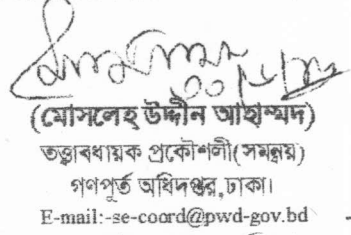 (মোসলেহ উদ্দীন আহাম্মদ)
তত্ত্বাবধায়ক প্রকৌশলী(সমন্বয়)
গণপূর্ত অধিদপ্তর,ঢাকা।
E-mail:-se-coord@pwd-gov.bd